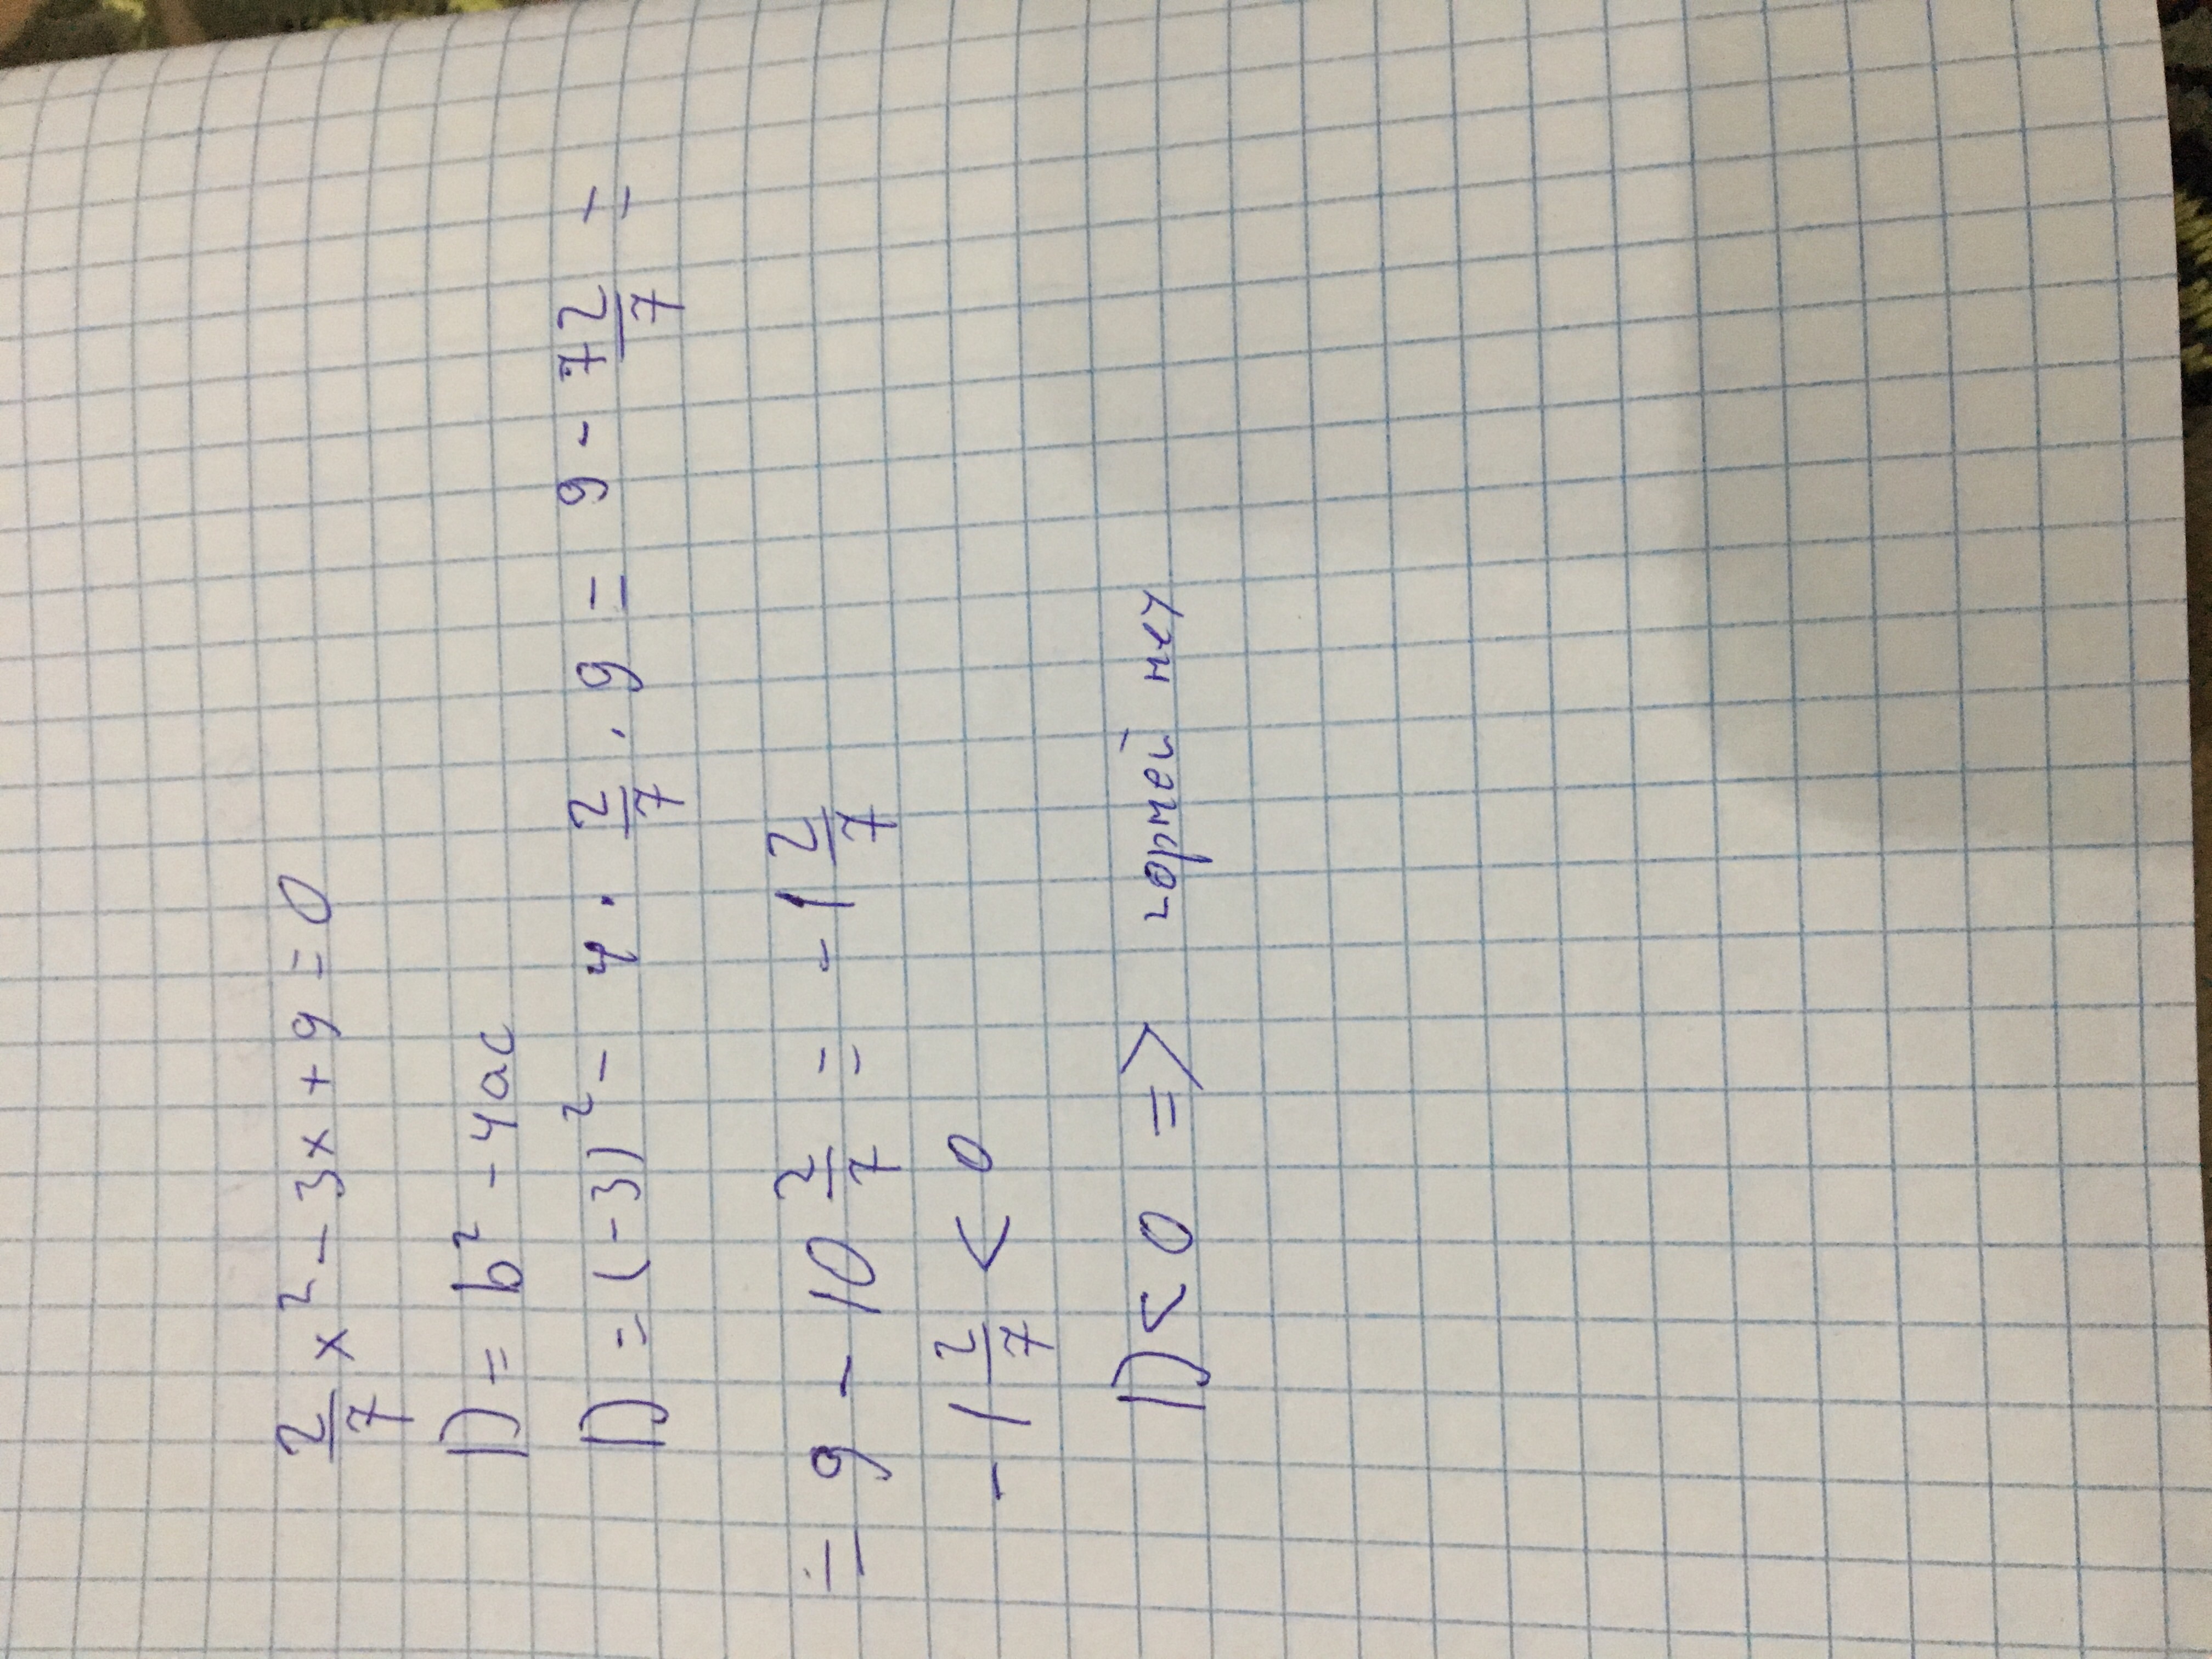 2/7 x² - 3x + 9 = 0
D = b² - 4ac
D = (-3)² - 4 · 2/7 · 9 = 9 - 72/7 =
= 9 - 10 2/7 = - 1 2/7
- 1 2/7 < 0
D < 0 => корней нет